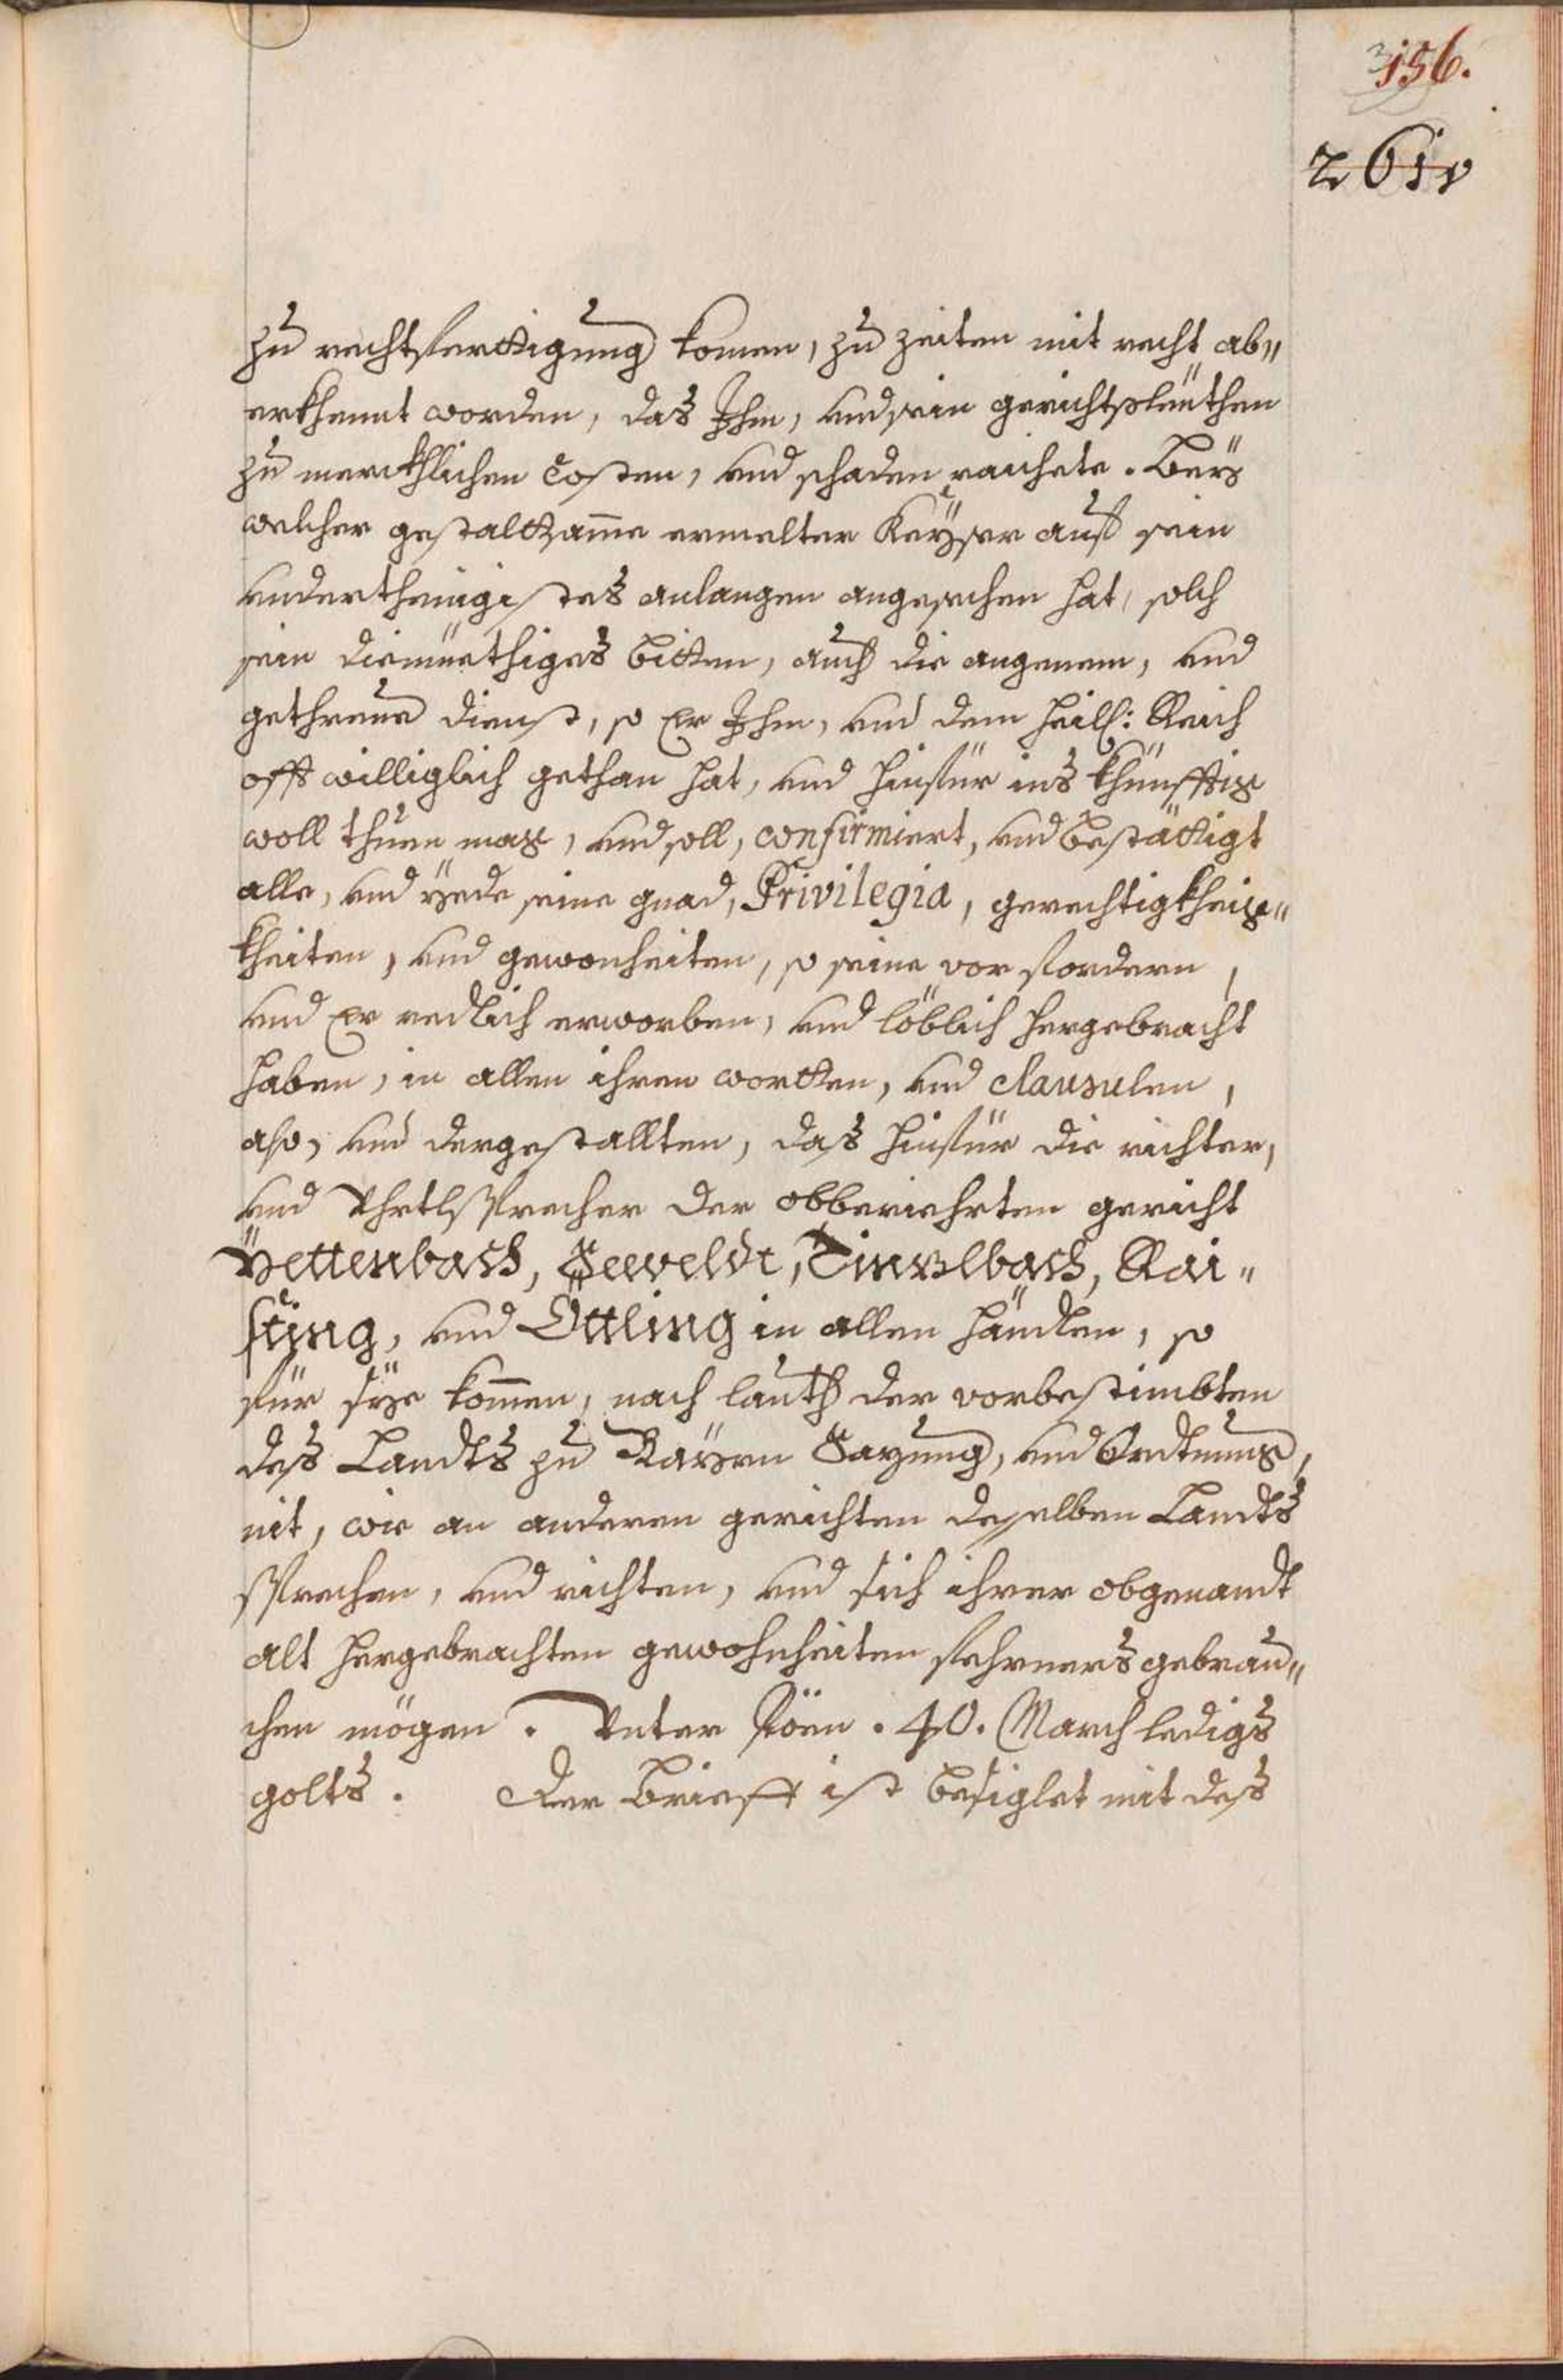 156.
261v
zu rechtferttigung komen, zu zeiten mit recht ab„
erkhennt worden, das Ihm, und sein gerichtsleüthen
zu merckhlichen costen, und schaden raichete. Beÿ
welcher gestaltsame ermelter Keÿser auf sein
underthenigistes anlangen angesechen hat, solch
sein diemüethiges bitten, auch die angenem, und
gethreue dienst, so Er Ihm, und dem heil: Reich
offt williglich gethan hat, und hinfür ins khünfftig
woll thuen mag, und soll, confirmiert, und bestättigt
alle, und ÿede seine gnad, Privilegia, gerechtigkheig„
kheiten, und gewonheiten, so seine vor fordern,
und Er redlich erworben, und löblich hergebracht
haben, in allen ihren wortten, und clausulen,
also, und dergestallten, das hinfür die richter,
und Uhrtlsprecher der obberiehrten gericht
Ÿettenbach, Seeveldt, Tinzlbach, Rai„
sting, und Öttling in allen händlen, so
für sÿe kommen, nach lauth der vorbestimbten
des Landts zu Baÿrn Sazung, und Ordtnung,
nit, wie an anderen gerichten deselben Landts
sprechen, und richten, und sich ihrer obgenandt
alt hergebrachten gewohnheiten fehrners gebrau„
chen mögen. Unter Pöen. 40. March ledigs
golts. Der Brieff ist besiglet mit des